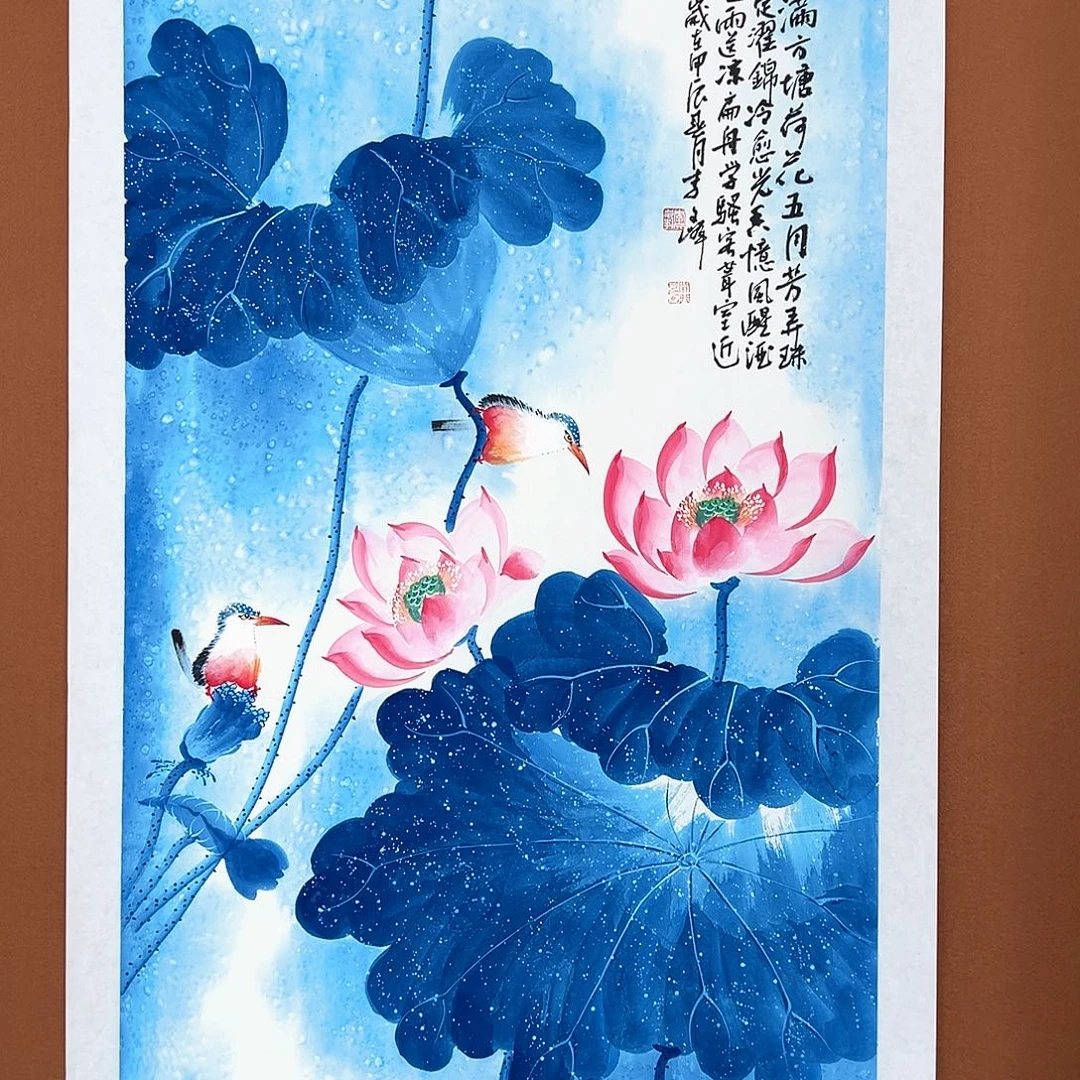 滿方塘荷花五月芳弄珠
濯錦冷愈光香憶風醒酒
雨送凉扁舟学騷客葦室近
歲在甲辰
月李